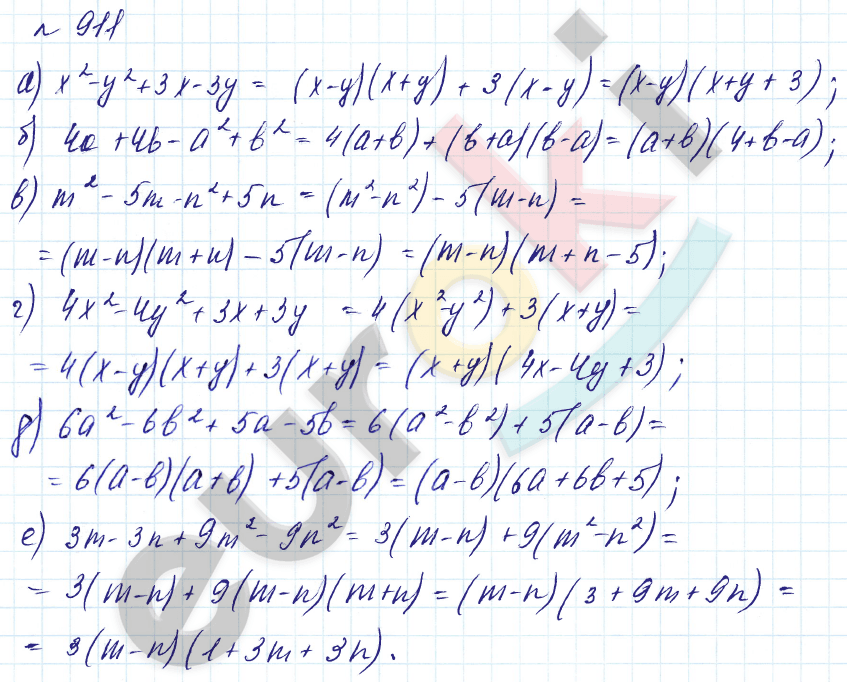 № 911
а) x²-y²+3x-3y = (x-y)(x+y) + 3(x-y) = (x-y)(x+y+3);
б) 4a+4b-a²+b² = 4(a+b)+(b+a)(b-a) = (a+b)(4+b-a);
в) m²-5m-n²+5n = (m²-n²)-5(m-n) =
= (m-n)(m+n)-5(m-n) = (m-n)(m+n-5);
г) 4x²-4y²+3x+3y = 4(x²-y²)+3(x+y) =
= 4(x-y)(x+y)+3(x+y) = (x+y)(4x-4y+3);
д) 6a²-6b²+5a-5b = 6(a²-b²)+5(a-b) =
= 6(a-b)(a+b)+5(a-b) = (a-b)(6a+6b+5);
е) 3m-3n+9m²-9n² = 3(m-n)+9(m²-n²) =
= 3(m-n)+9(m-n)(m+n) = (m-n)(3+9m+9n) =
= 3(m-n)(1+3m+3n).
euroki